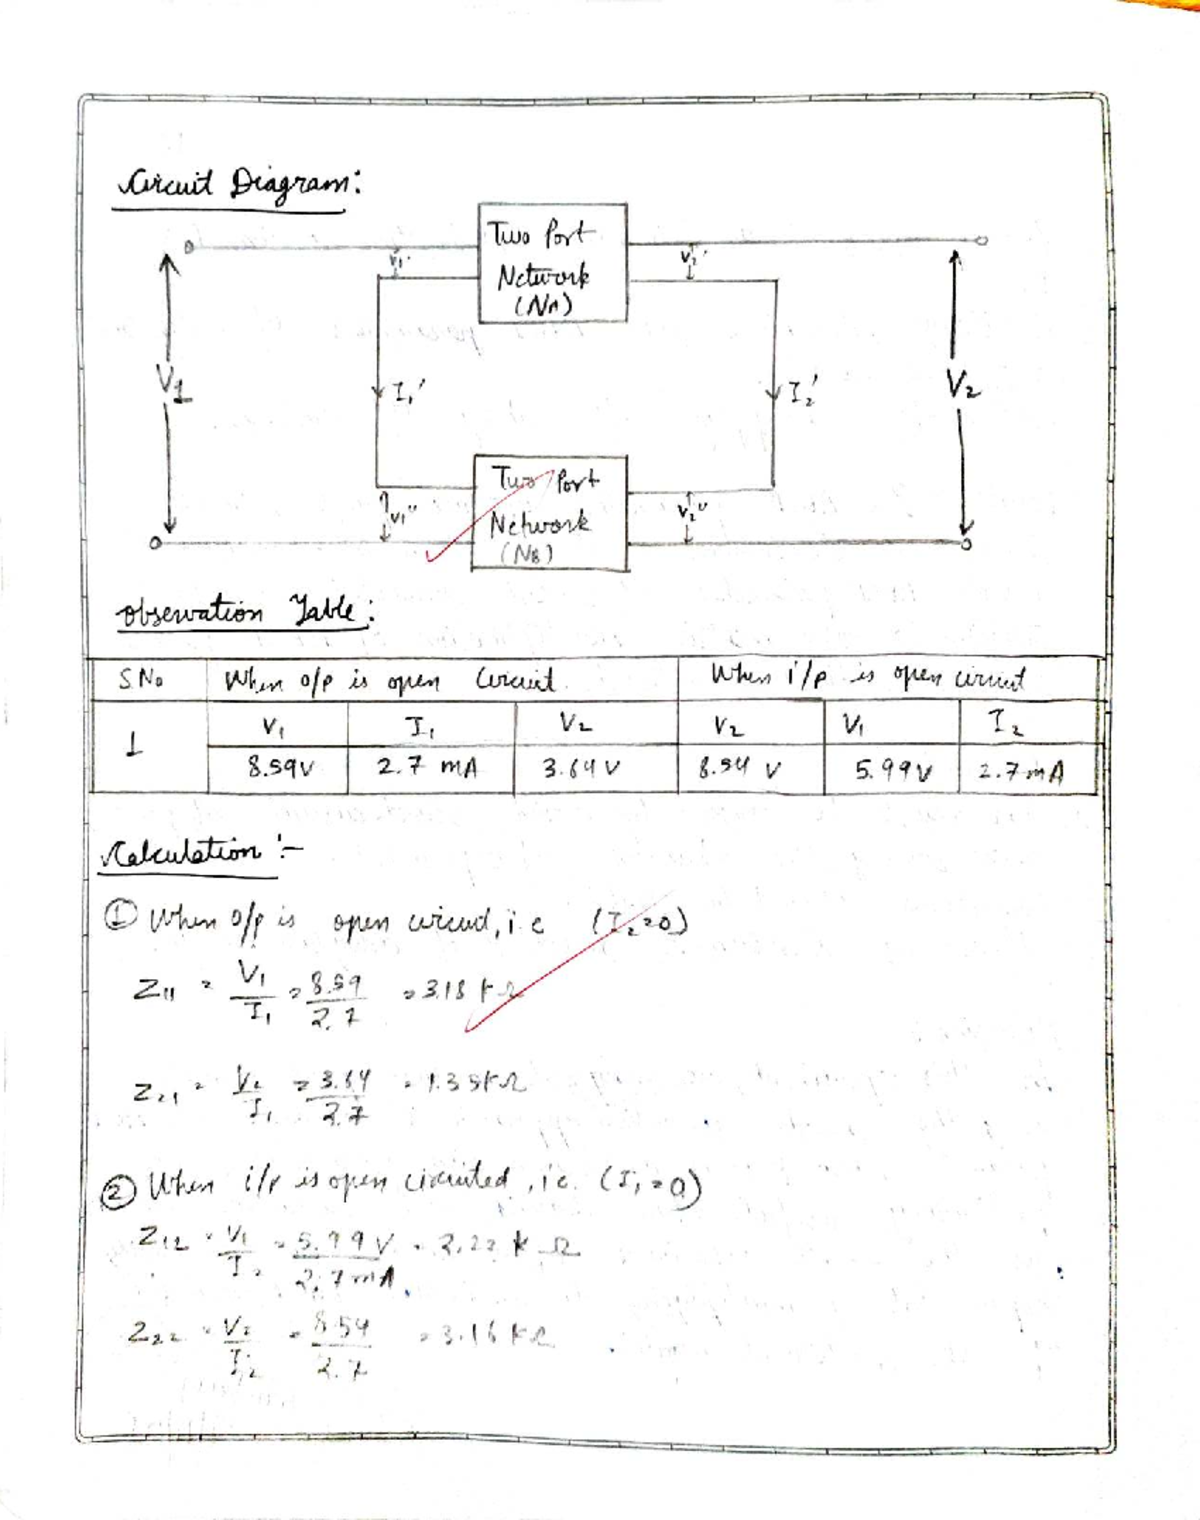 Circuit Diagram:
Two Port
Network
(NA)
V1'
V2'
V1
I1'
I2'
V2
Two Port
Network
(NB)
V1"
V2"
Observation Table:
S.No When o/p is open Circuit When i/p is open circuit
1 V1 I1 V2 V2 V1 I2
8.59V 2.7 mA 3.64V 8.54 V 5.99V 2.7mA
Calculation :-
① When o/p is open circuit, i.e (I2=0)
Z11 = V1/I1 = 8.59/2.7 = 3.18 kΩ
Z21 = V2/I1 = 3.64/2.7 = 1.35kΩ
② When i/p is open circuited, i.e. (I1=0)
Z12 = V1/I2 = 5.99V/2.7mA = 2.22 kΩ
Z22 = V2/I2 = 8.54/2.7 = 3.16 kΩ